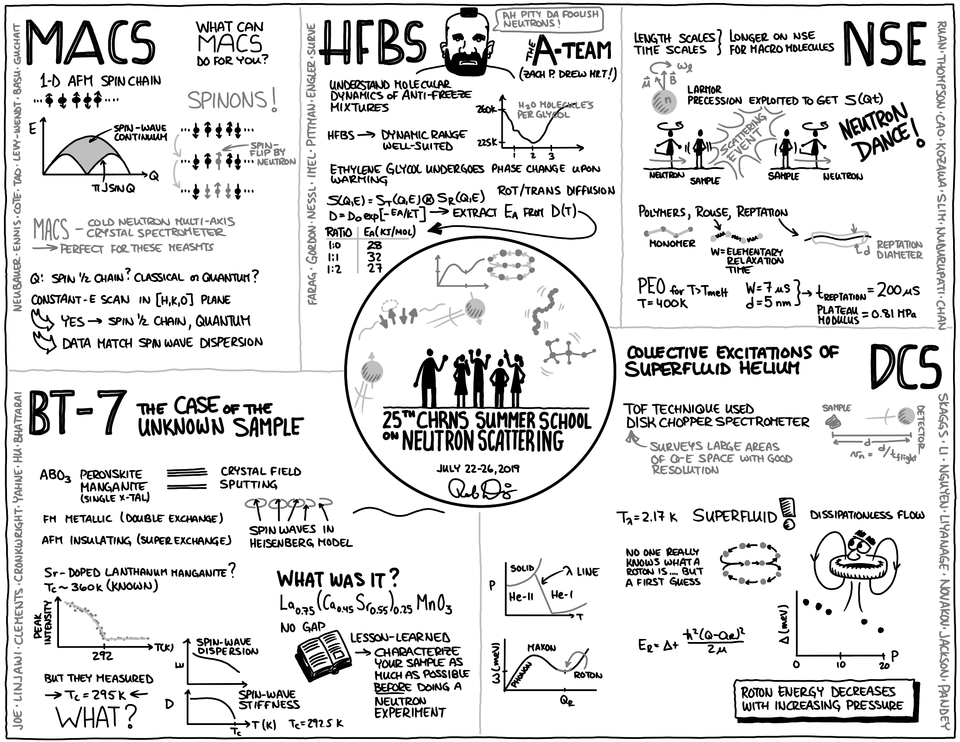 MACS
WHAT CAN
MACS
DO FOR YOU?
1-D AFM SPIN CHAIN
SPINONS!
E
SPIN-WAVE
CONTINUUM
π J SIN Q
Q
SPIN-
FLIP BY
NEUTRON
MACS - COLD NEUTRON MULTI-AXIS
CRYSTAL SPECTROMETER
→ PERFECT FOR THESE MEASMTS
Q: SPIN 1/2 CHAIN? CLASSICAL OR QUANTUM?
CONSTANT-E SCAN IN [H,K,0] PLANE
YES → SPIN 1/2 CHAIN, QUANTUM
DATA MATCH SPIN WAVE DISPERSION
NEUBAUER · ENNIS · COTE · TAO · LEVY-WENDT · BASU · GUCHAIT
HFBS
AH PITY DA FOOLISH
NEUTRONS!
THE A-TEAM
(ZACH P. DREW MR.T!)
UNDERSTAND MOLECULAR
DYNAMICS OF ANTI-FREEZE
MIXTURES
HFBS → DYNAMIC RANGE
WELL-SUITED
260K
225K
H2O MOLECULES
PER GLYCOL
1 2 3
ETHYLENE GLYCOL UNDERGOES PHASE CHANGE UPON
WARMING
ROT/TRANS DIFFUSION
S(Q,E) = ST(Q,E) ⊗ SR(Q,E)
D = D0 EXP[-EA/KT] → EXTRACT EA FROM D(T)
RATIO EA(KJ/MOL)
1:0 28
1:1 32
1:2 27
FARAG · GORDON · NESSL · IMEL · PITTMAN · ENGLER · SURVE
NSE
LENGTH SCALES } LONGER ON NSE
TIME SCALES } FOR MACROMOLECULES
μ B ωL
n
LARMOR
PRECESSION EXPLOITED TO GET S(Q,t)
SCATTERING
EVENT
NEUTRON
DANCE!
NEUTRON SAMPLE SAMPLE NEUTRON
POLYMERS, ROUSE, REPTATION
MONOMER
W = ELEMENTARY
RELAXATION
TIME
REPTATION
DIAMETER
d
PEO FOR T>Tmelt W = 7 μS
T = 400K d = 5 nm
→ tREPTATION = 200 μS
PLATEAU
MODULUS = 0.81 MPa
RUAN · THOMPSON · CAO · KOZAWA · SLIM · NUDURUPATI · CHAN
25TH CHRNS SUMMER SCHOOL
ON NEUTRON SCATTERING
JULY 22-26, 2019
BT-7
THE CASE OF THE
UNKNOWN SAMPLE
ABO3 PEROVSKITE
MANGANITE
(SINGLE X-TAL)
CRYSTAL FIELD
SPUTTING
FM METALLIC (DOUBLE EXCHANGE)
AFM INSULATING (SUPER EXCHANGE)
SPIN WAVES IN
HEISENBERG MODEL
Sr-DOPED LANTHANUM MANGANITE?
Tc ~ 360K (KNOWN)
PEAK
INTENSITY
292
T(K)
BUT THEY MEASURED
→ Tc = 295K ←
WHAT?
SPIN-WAVE
DISPERSION
E
SPIN-WAVE
STIFFNESS
D
Tc
T (K)
Tc = 292.5 K
WHAT WAS IT?
La0.75(Ca0.45 Sr0.55)0.25 MnO3
NO GAP
LESSON-LEARNED
→ CHARACTERIZE
YOUR SAMPLE AS
MUCH AS POSSIBLE
BEFORE DOING A
NEUTRON
EXPERIMENT
JOE · LINJAWI · CLEMENTS · CRONKWRIGHT · YAHNE · HU · BHATTARAI
DCS
COLLECTIVE EXCITATIONS OF
SUPERFLUID HELIUM
TOF TECHNIQUE USED
DISK CHOPPER SPECTROMETER
SURVEYS LARGE AREAS
OF Q-E SPACE WITH GOOD
RESOLUTION
SAMPLE
DETECTOR
d
vn = d/tflight
Tλ = 2.17 K SUPERFLUID!
DISSIPATIONLESS FLOW
NO ONE REALLY
KNOWS WHAT A
ROTON IS.... BUT
A FIRST GUESS
P
SOLID
λ LINE
He-II
He-I
T
ω(meV)
MAXON
PHONON
ROTON
QR
ER = Δ + ħ²(Q-QR)²/2μ
Δ(meV)
0 10 20 P
ROTON ENERGY DECREASES
WITH INCREASING PRESSURE
SKAGGS · LI · NGUYEN · LIYANAGE · NOVAKOV · JACKSON · PANDEY